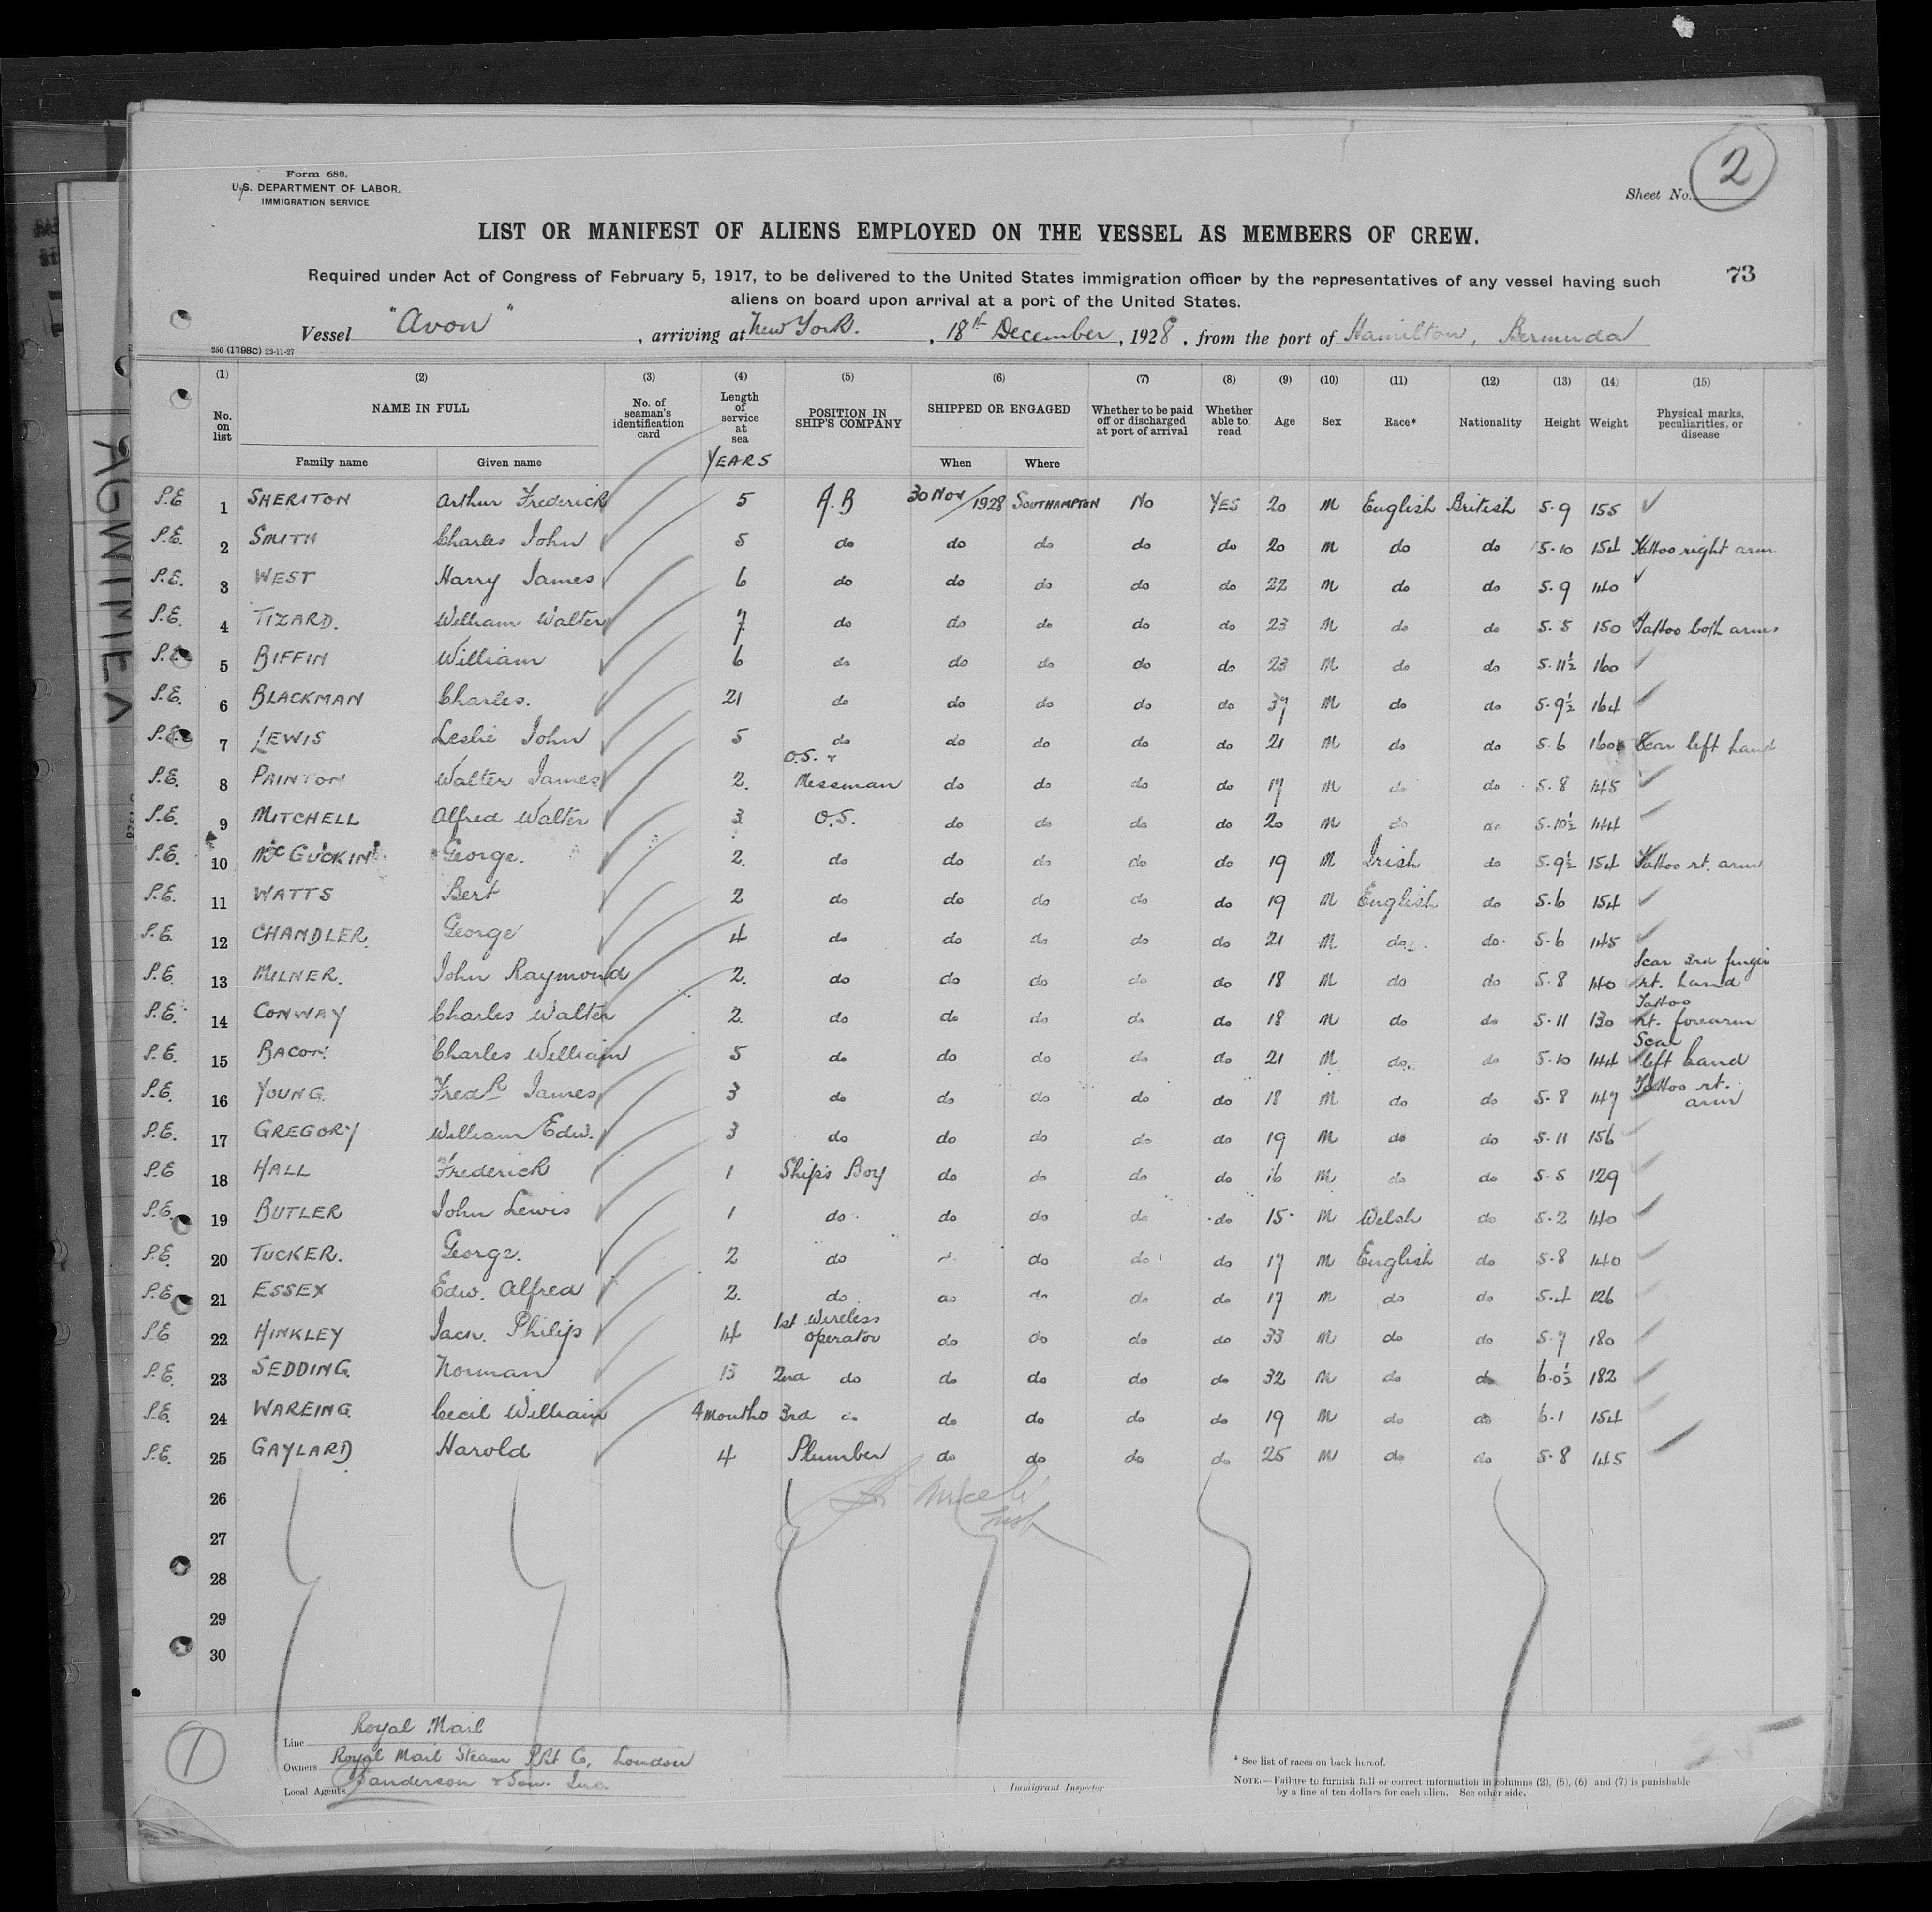 2
Form 680.
U.S. DEPARTMENT OF LABOR,
IMMIGRATION SERVICE
Sheet No.
LIST OR MANIFEST OF ALIENS EMPLOYED ON THE VESSEL AS MEMBERS OF CREW.
73
Required under Act of Congress of February 5, 1917, to be delivered to the United States immigration officer by the representatives of any vessel having such
aliens on board upon arrival at a port of the United States.
Vessel "Avon" , arriving at New York. , 18th December, 1928 , from the port of Hamilton, Bermuda
250 (1798C) 23-11-27
(1) (2) (3) (4) (5) (6) (7) (8) (9) (10) (11) (12) (13) (14) (15)
No. on list NAME IN FULL No. of seaman's identification card Length of service at sea POSITION IN SHIP'S COMPANY SHIPPED OR ENGAGED Whether to be paid off or discharged at port of arrival Whether able to read Age Sex Race* Nationality Height Weight Physical marks, peculiarities, or disease
Family name Given name YEARS When Where
P.E 1 SHERITON Arthur Frederick 5 A.B 30 Nov/1928 SOUTHAMPTON No YES 20 M English British 5.9 155
P.E. 2 SMITH Charles John 5 do do do do do 20 M do do 5.10 154 Tattoo right arm
P.E. 3 WEST Harry James 6 do do do do do 22 M do do 5.9 140
P.E. 4 TIZARD. William Walter 7 do do do do do 23 M do do 5.5 150 Tattoo both arms
P.E. 5 BIFFIN William 6 do do do do do 23 M do do 5.11½ 160
P.E. 6 BLACKMAN Charles. 21 do do do do do 37 M do do 5.9½ 164
P.E. 7 LEWIS Leslie John 5 do do do do do 21 M do do 5.6 160 Scar left hand
P.E. 8 PAINTON Walter James 2. O.S. & Messman do do do do 17 M do do 5.8 145
P.E. 9 MITCHELL Alfred Walter 3 O.S. do do do do 20 M do do 5.10½ 144
P.E. 10 McGUCKIN George. 2. do do do do do 19 M Irish do 5.9½ 154 Tattoo rt. arm
P.E. 11 WATTS Bert 2 do do do do do 19 M English do 5.6 154
P.E. 12 CHANDLER. George 4 do do do do do 21 M do do 5.6 145
P.E. 13 MILNER. John Raymond 2. do do do do do 18 M do do 5.8 140 Scar 3rd finger rt. hand
P.E. 14 CONWAY Charles Walter 2. do do do do do 18 M do do 5.11 130 Tattoo rt. forearm
P.E. 15 BACON Charles William 5 do do do do do 21 M do do 5.10 144 Scar left hand
P.E. 16 YOUNG FredR James 3 do do do do do 18 M do do 5.8 147 Tattoo rt. arm
P.E. 17 GREGORY William Edw. 3 do do do do do 19 M do do 5.11 156
P.E 18 HALL Frederick 1 Ship's Boy do do do do 16 M do do 5.5 129
P.E. 19 BUTLER John Lewis 1 do do do do do 15 M Welsh do 5.2 140
P.E. 20 TUCKER. George. 2 do do do do 17 M English do 5.8 140
P.E. 21 ESSEX Edw. Alfred 2. do do do do do 17 M do do 5.4 126
P.E 22 HINKLEY Jack. Philip 14 1st Wireless operator do do do do 33 M do do 5.7 180
P.E. 23 SEDDING Norman 13 2nd do do do do do 32 M do do 6.0½ 182
P.E. 24 WAREING Cecil William 4 months 3rd do do do do do 19 M do do 6.1 154
P.E. 25 GAYLARD Harold 4 Plumber do do do do 25 M do do 5.8 145
26
27
28
29
30
1
Line Royal Mail
Owners Royal Mail Steam Pkt Co, London
Local Agents Sanderson & Son. Inc.
Immigrant Inspector
* See list of races on back hereof.
NOTE.—Failure to furnish full or correct information in columns (2), (5), (6) and (7) is punishable
by a fine of ten dollars for each alien. See other side.